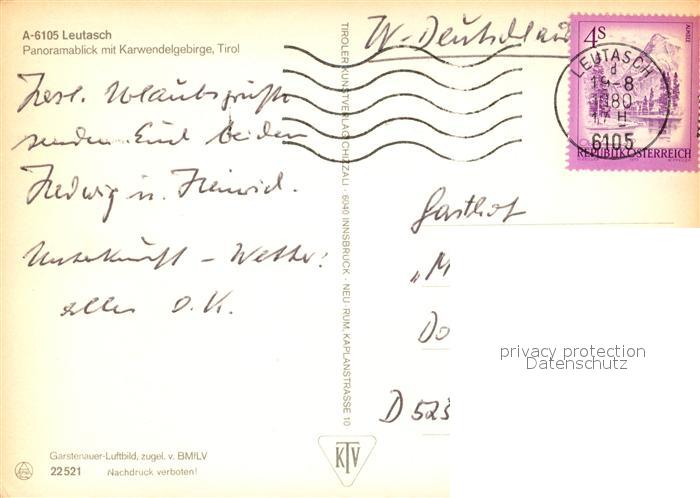 A-6105 Leutasch
Panoramablick mit Karwendelgebirge, Tirol
Herl. Urlaubsgrüße
senden Euch beiden
Hedwig u. Heinrich.
Unterkunft – Wetter:
alles O.K.
Garstenauer-Luftbild, zugel. v. BMfLV
22521 Nachdruck verboten!
TIROLER KUNSTVERLAG CHIZZALI · 6040 INNSBRUCK · NEU-RUM, KAPLANSTRASSE 10
KTV
W-Deutschland
4S
ALMSEE
REPUBLIK ÖSTERREICH
LEUTASCH
6105
Gasthof
"M
Do
D 523
privacy protection
Datenschutz